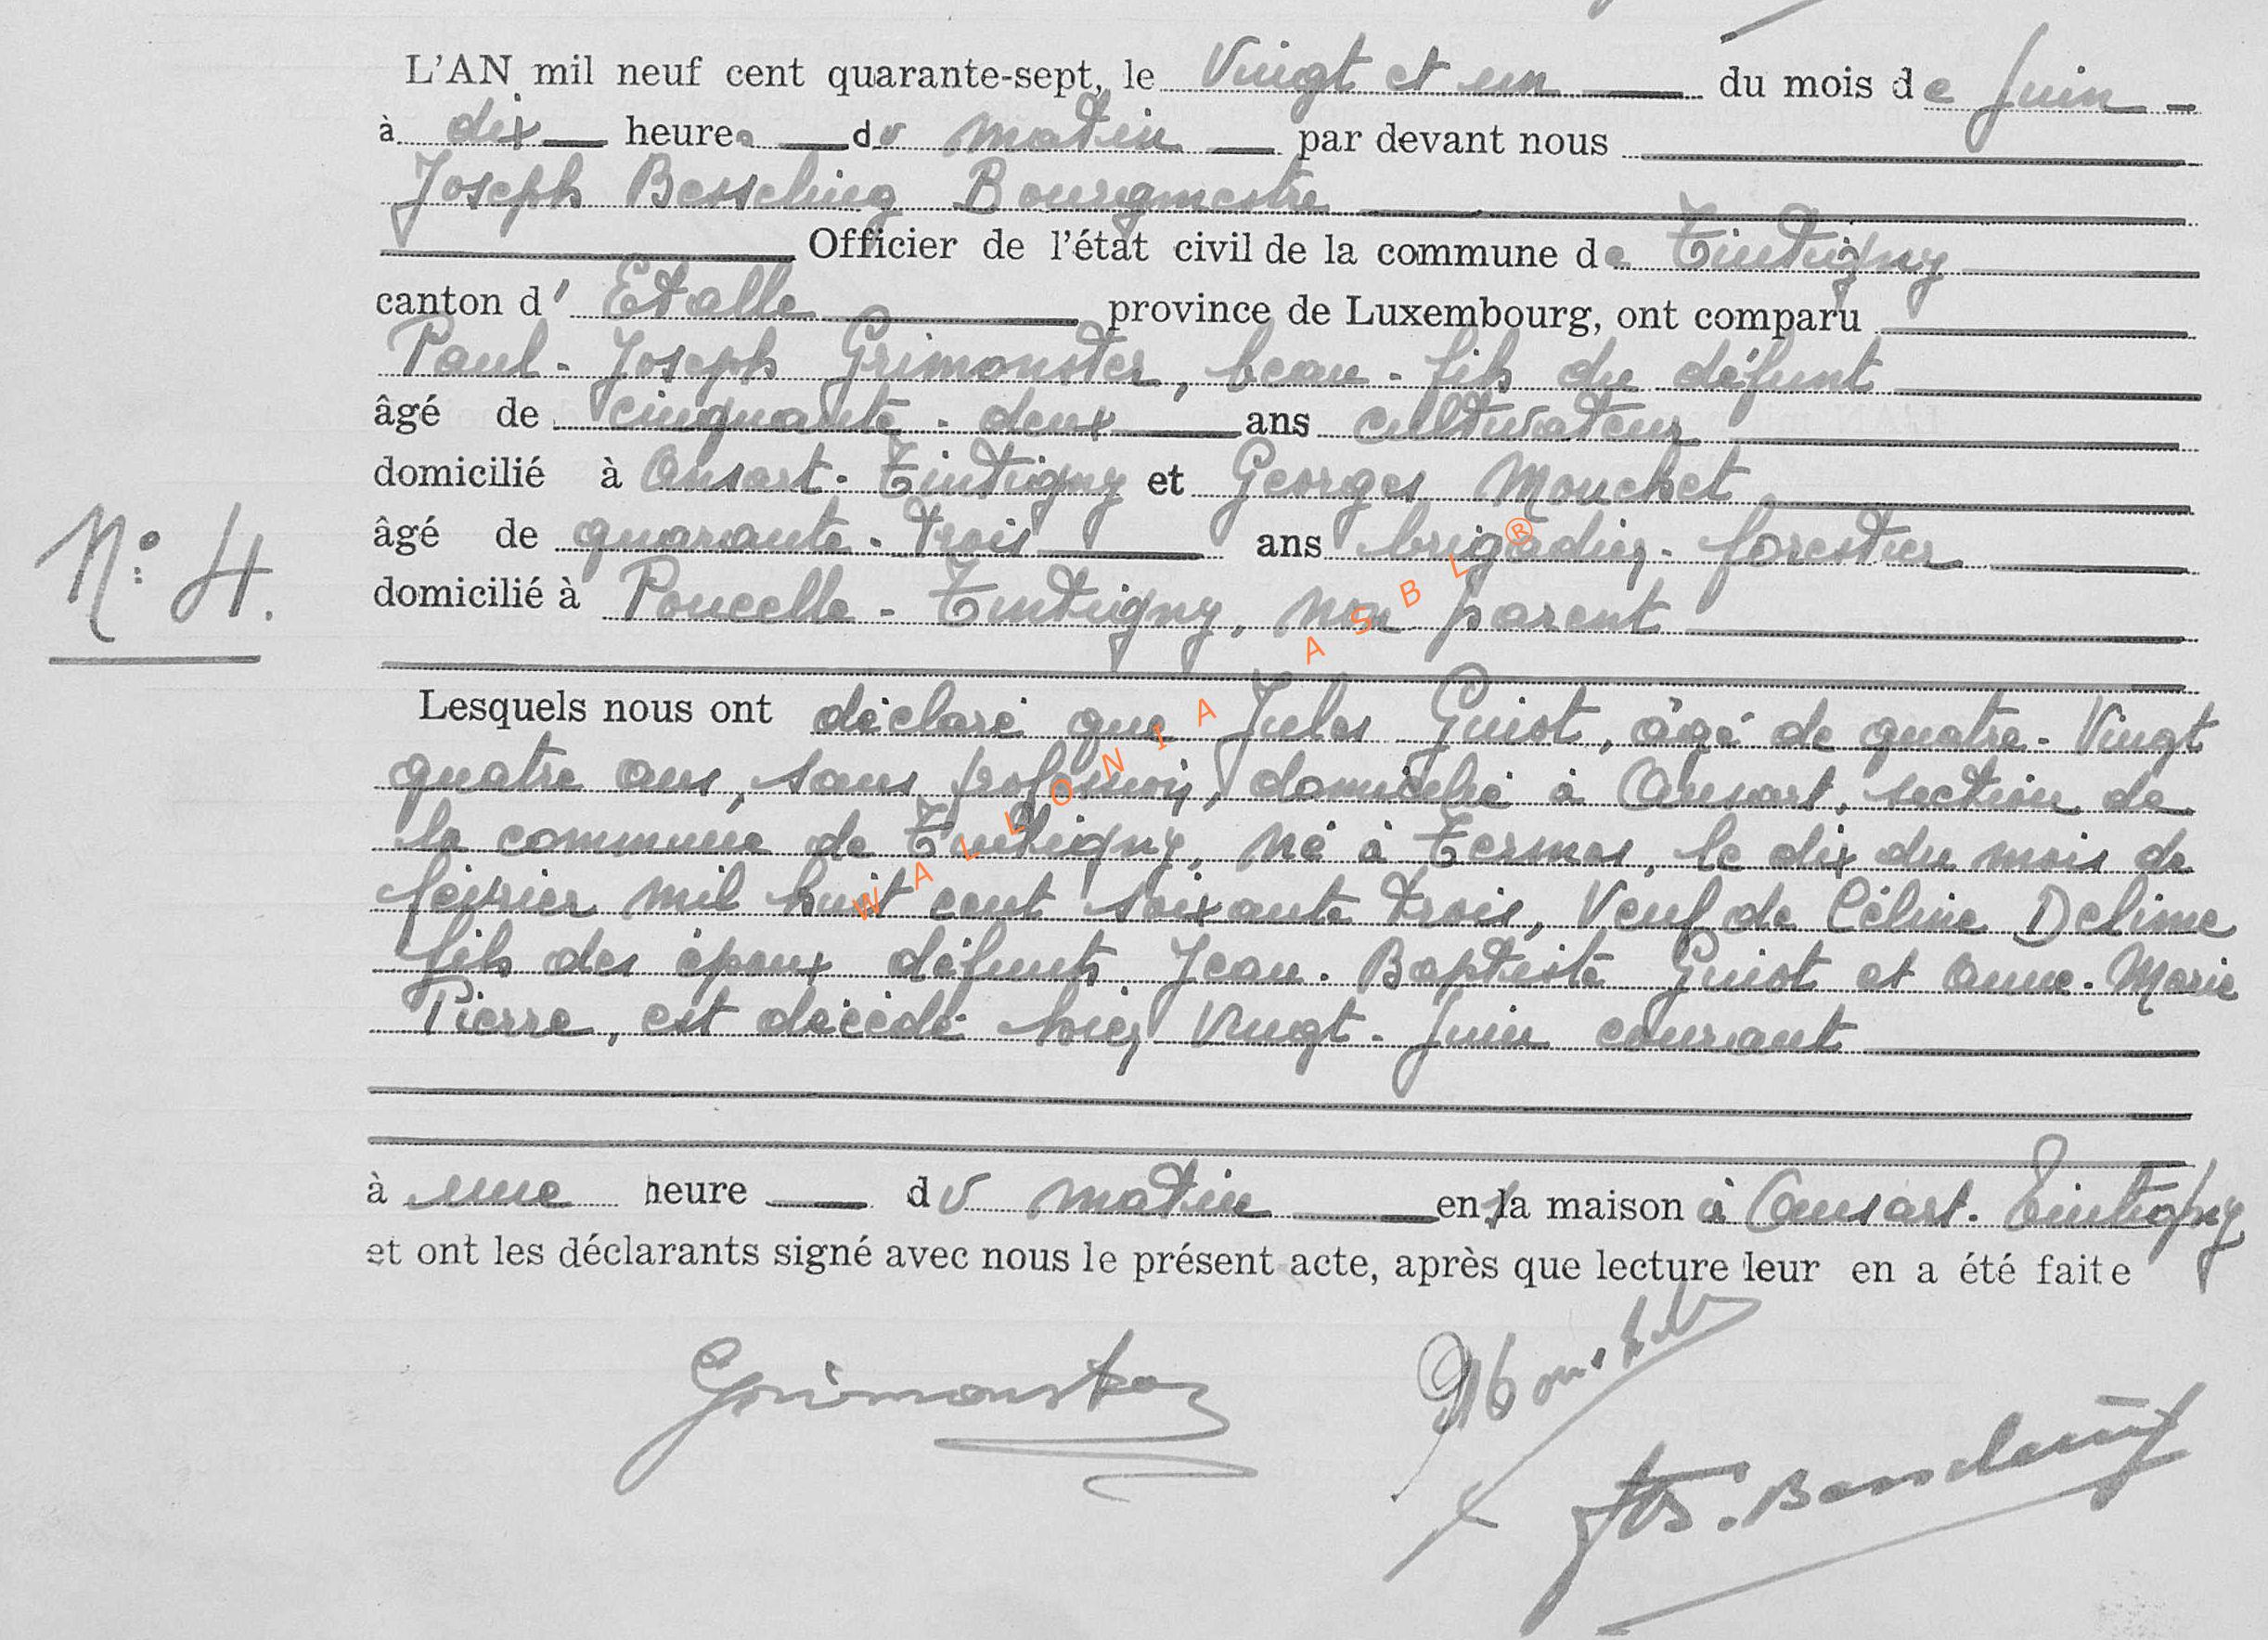 L'AN mil neuf cent quarante-sept, le Vingt et un du mois de Juin
à dix heures du matin par devant nous
Joseph Bessling Bourgmestre
Officier de l'état civil de la commune de Tintigny
canton d' Etalle province de Luxembourg, ont comparu
Paul-Joseph Grimonster, beau-fils du défunt
âgé de cinquante-deux ans cultivateur
domicilié à Ansart-Tintigny et Georges Mouchet,
N° 4.
âgé de quarante-trois ans brigadier-forestier
domicilié à Poncelle-Tintigny, non parent
Lesquels nous ont déclaré que Jules Guiot, âgé de quatre-Vingt
quatre ans, sans profession, domicilié à Ansart, section de
la commune de Tintigny, né à Termes, le dix du mois de
février mil huit cent soixante trois, Veuf de Céline Delime
fils des époux défunts Jean-Baptiste Guiot et Anne-Marie
Pierre, est décédé hier Vingt-Juin courant
à une heure du matin en la maison à Ansart-Tintigny
et ont les déclarants signé avec nous le présent acte, après que lecture leur en a été faite
Grimonster
WALLONIA ASBL®